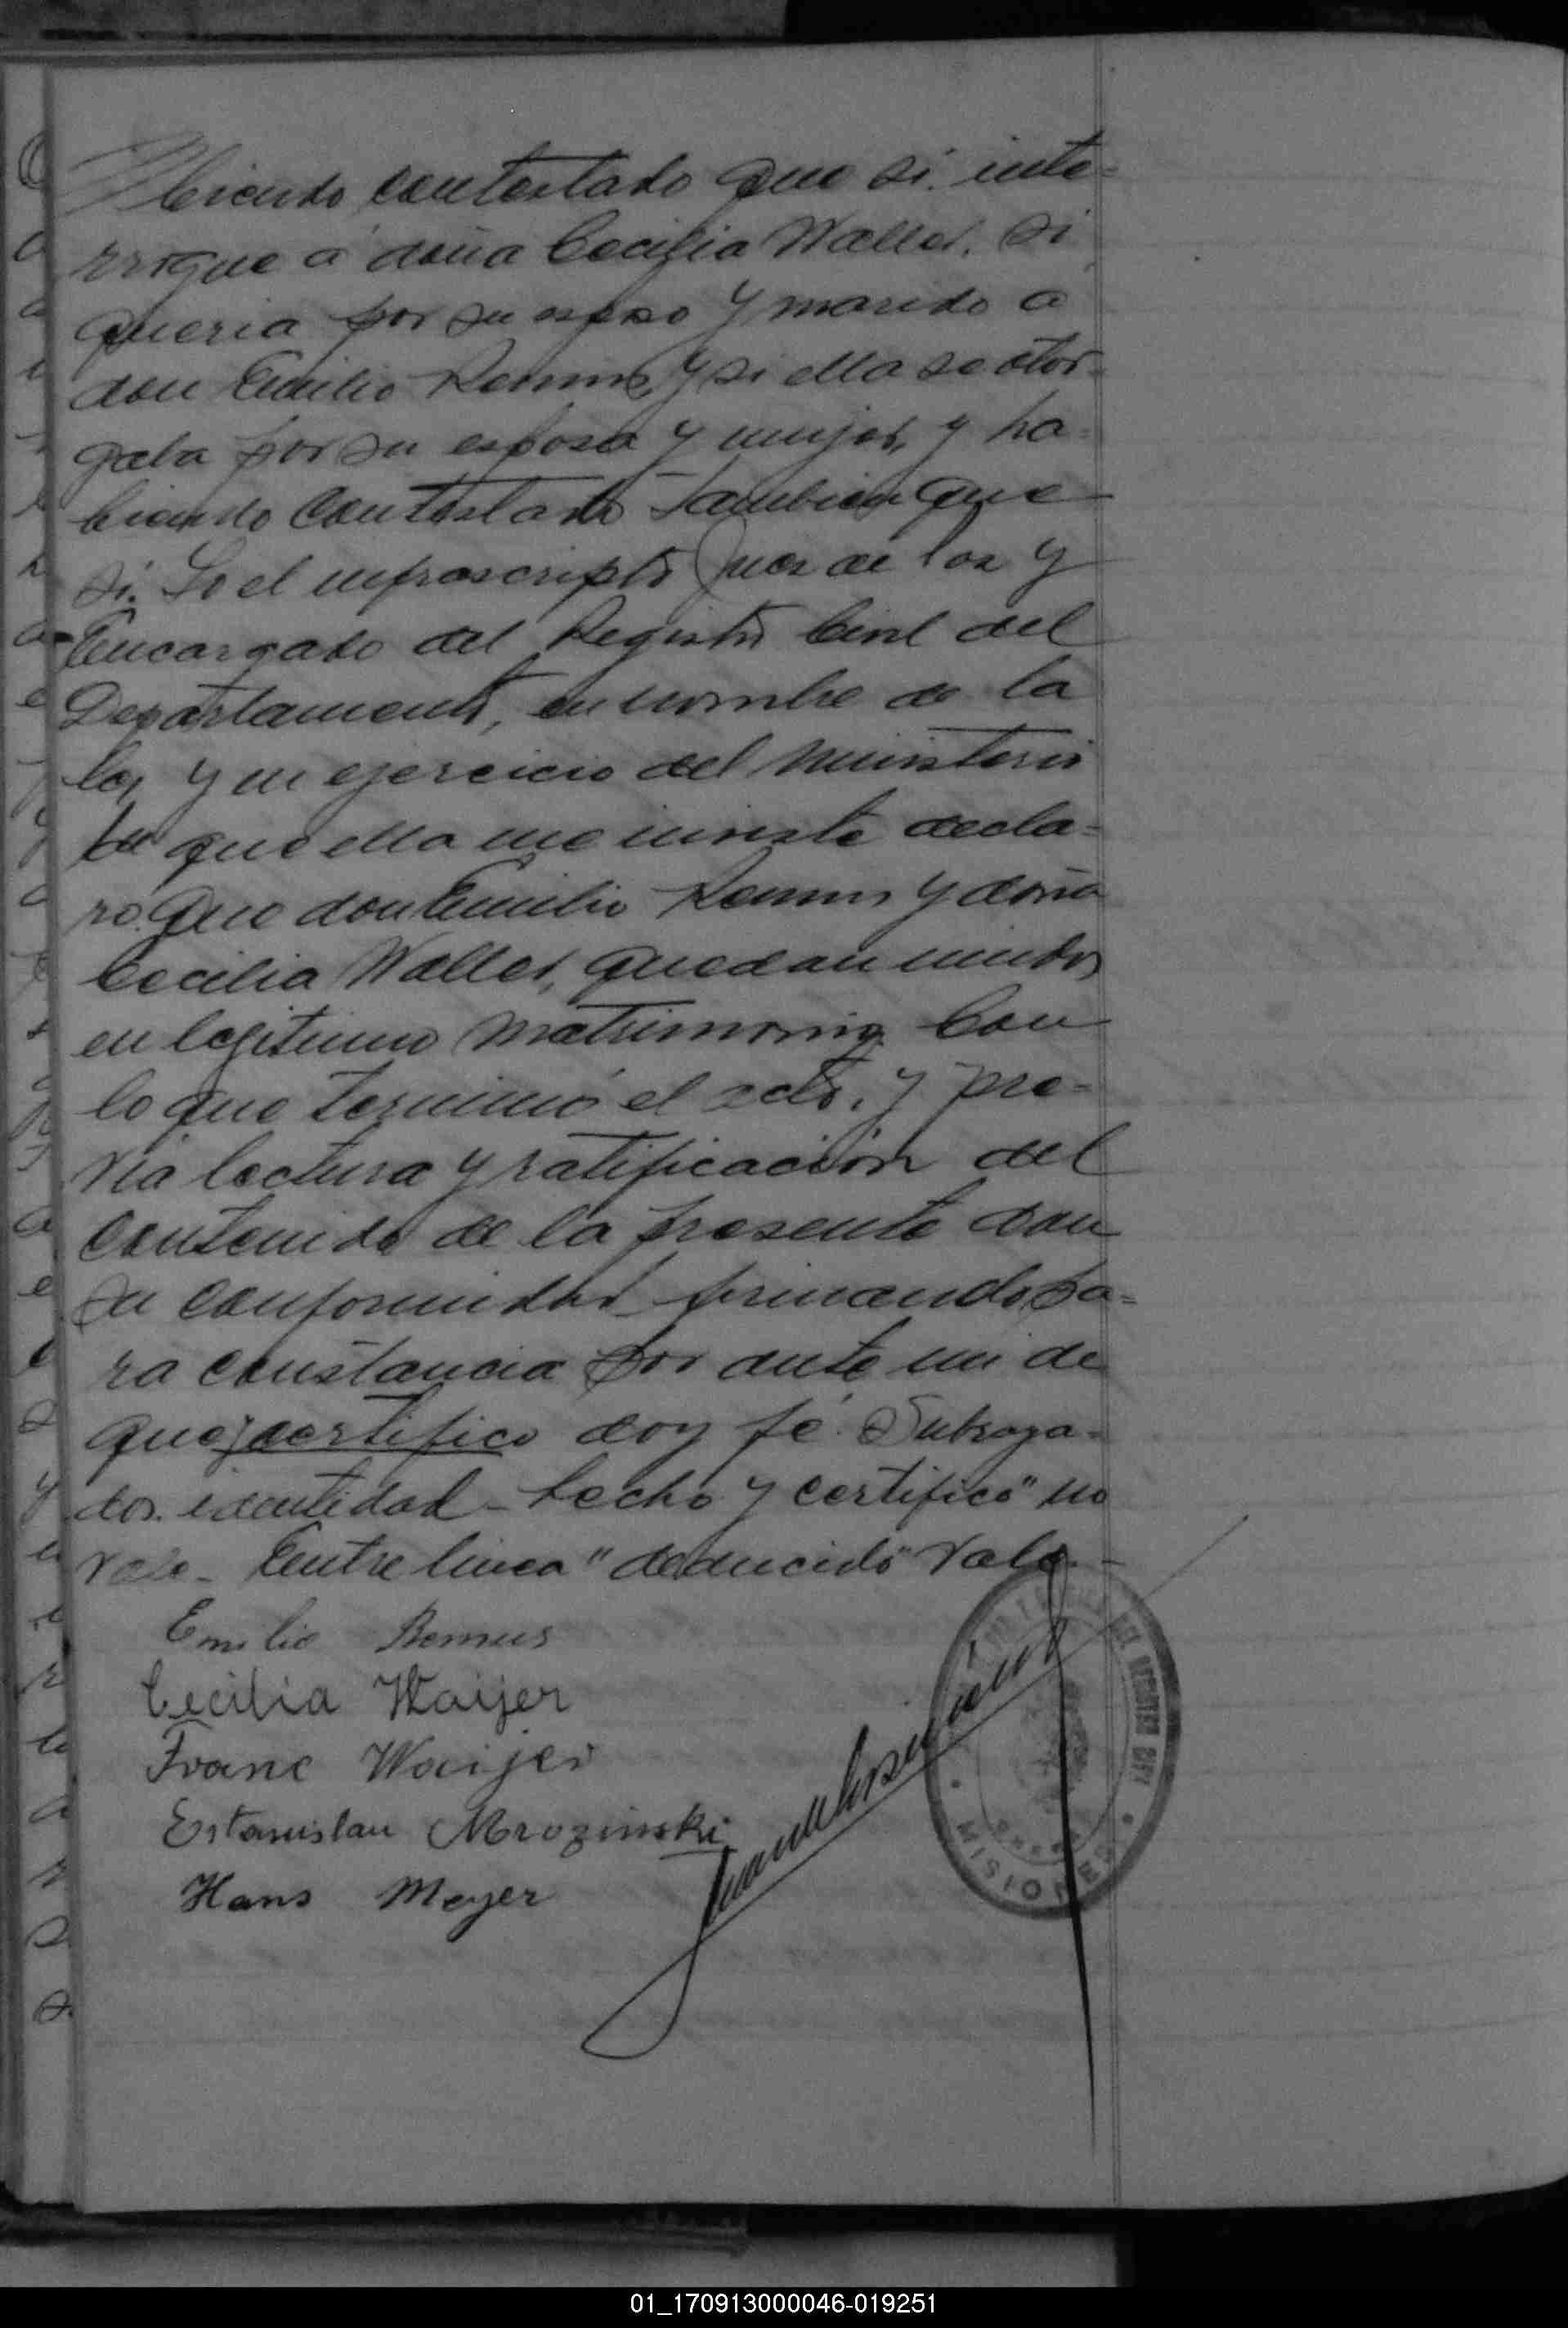 biendo contestado que si, inte-
rrogue a doña Cecilia Waller, si
queria por su esposo y marido a
don Emilio Remus, y si ella se otor-
gaba por su esposa y mujer, y ha-
biendo contestado tambien que
si. Yo el infrascripto Juez de Paz y
Encargado del Registro Civil del
Departamento, en nombre de la
ley y en ejercicio del ministerio
de que ella me inviste decla-
ro. Que don Emilio Remus y doña
Cecilia Waller, quedan unidos
en legitimo matrimonio. Con
lo que terminó el acto, y pre-
via lectura y ratificación del
contenido de la presente dan
su conformidad firmando pa-
ra constancia por ante mi de
que certifico doy fé. Subraya-
dos. identidad - hecho y certifico" no
vale - Entre linea "deducido" vale -
Emilio Remus
Cecilia Waijer
Franc Waijer
Estanislau Mrozinski
Hans Meyer
DEL REGISTRO CIVIL
MISIONES
01_170913000046-019251